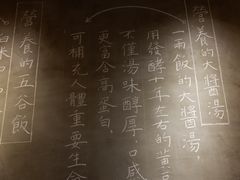 營養的大醬湯
一兩飯的大醬湯，
用發酵十年左右的黃豆
不僅湯味醇厚，口感
更富含高蛋白，
可補充人體重要生命
營養的五谷飯